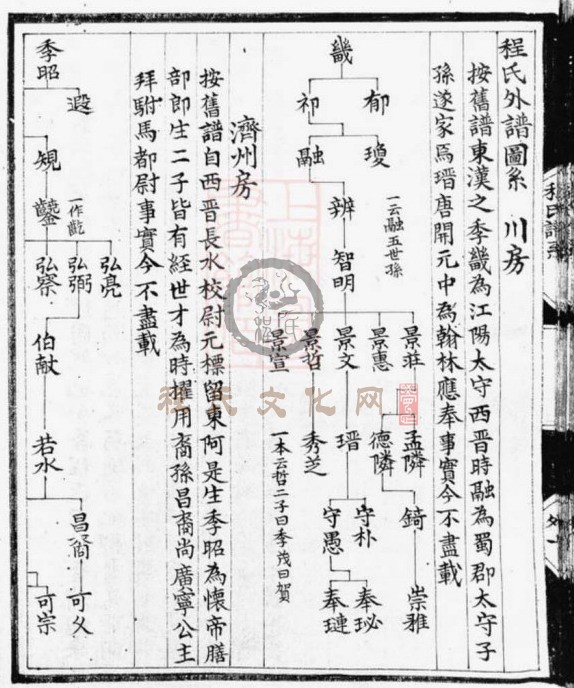 程氏外譜圖系 川房
按舊譜東漢之季畿為江陽太守西晋時融為蜀郡太守子
孫遂家焉瑨唐開元中為翰林應奉事實今不盡載
畿
郁
祁
瓊
融
辨
一云融五世孫
智明
景莊
景惠
景文
景哲
景宣
孟隣
德隣
瑨
秀芝
一本云哲二子曰季茂曰賀
錡
守朴
守愚
崇雅
奉珌
奉璉
濟州房
按舊譜自西晋長水校尉元標留東阿是生季昭為懷帝膳
部郎生二子皆有経世才為時擢用裔孫昌裔尚廣寧公主
拜駙馬都尉事實今不盡載
季昭
遐
規
弘亮
弘弼
弘察
伯献
若水
昌裔
可父
可宗
程氏文化网